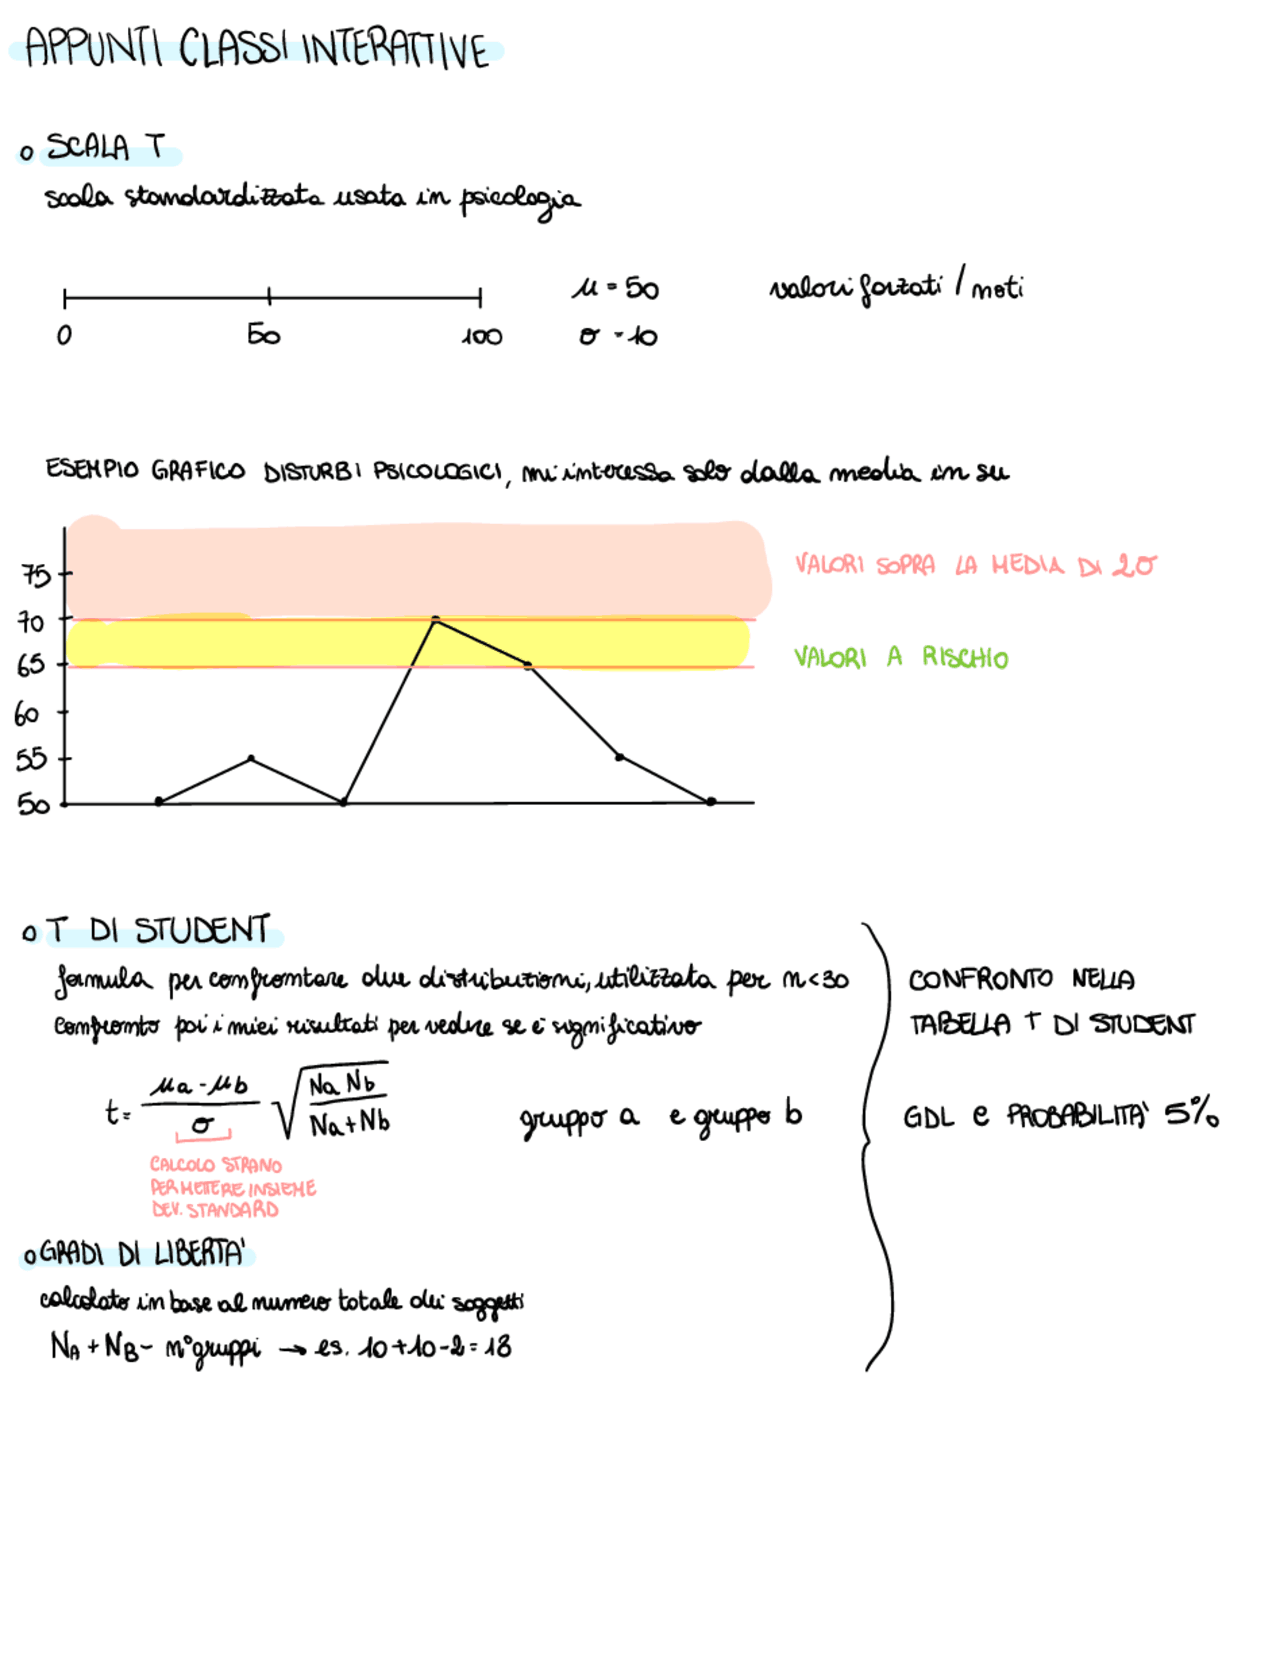 APPUNTI CLASSI INTERATTIVE
o SCALA T
scala standardizzata usata in psicologia
μ = 50 valori forzati / noti
0 50 100 σ = 10
ESEMPIO GRAFICO DISTURBI PSICOLOGICI, mi interessa solo dalla media in su
75
VALORI SOPRA LA MEDIA DI 2σ
70
65
VALORI A RISCHIO
60
55
50
o T DI STUDENT
formula per confrontare due distribuzioni, utilizzata per n < 30
confronto poi i miei risultati per vedere se è significativo
CONFRONTO NELLA
TABELLA T DI STUDENT
t = (μa - μb) / σ √(Na Nb / Na + Nb)
gruppo a e gruppo b
GDL e PROBABILITA' 5%
CALCOLO STRANO
PER METTERE INSIEME
DEV. STANDARD
o GRADI DI LIBERTA'
calcolato in base al numero totale dei soggetti
NA + NB - n° gruppi → es. 10 + 10 - 2 = 18